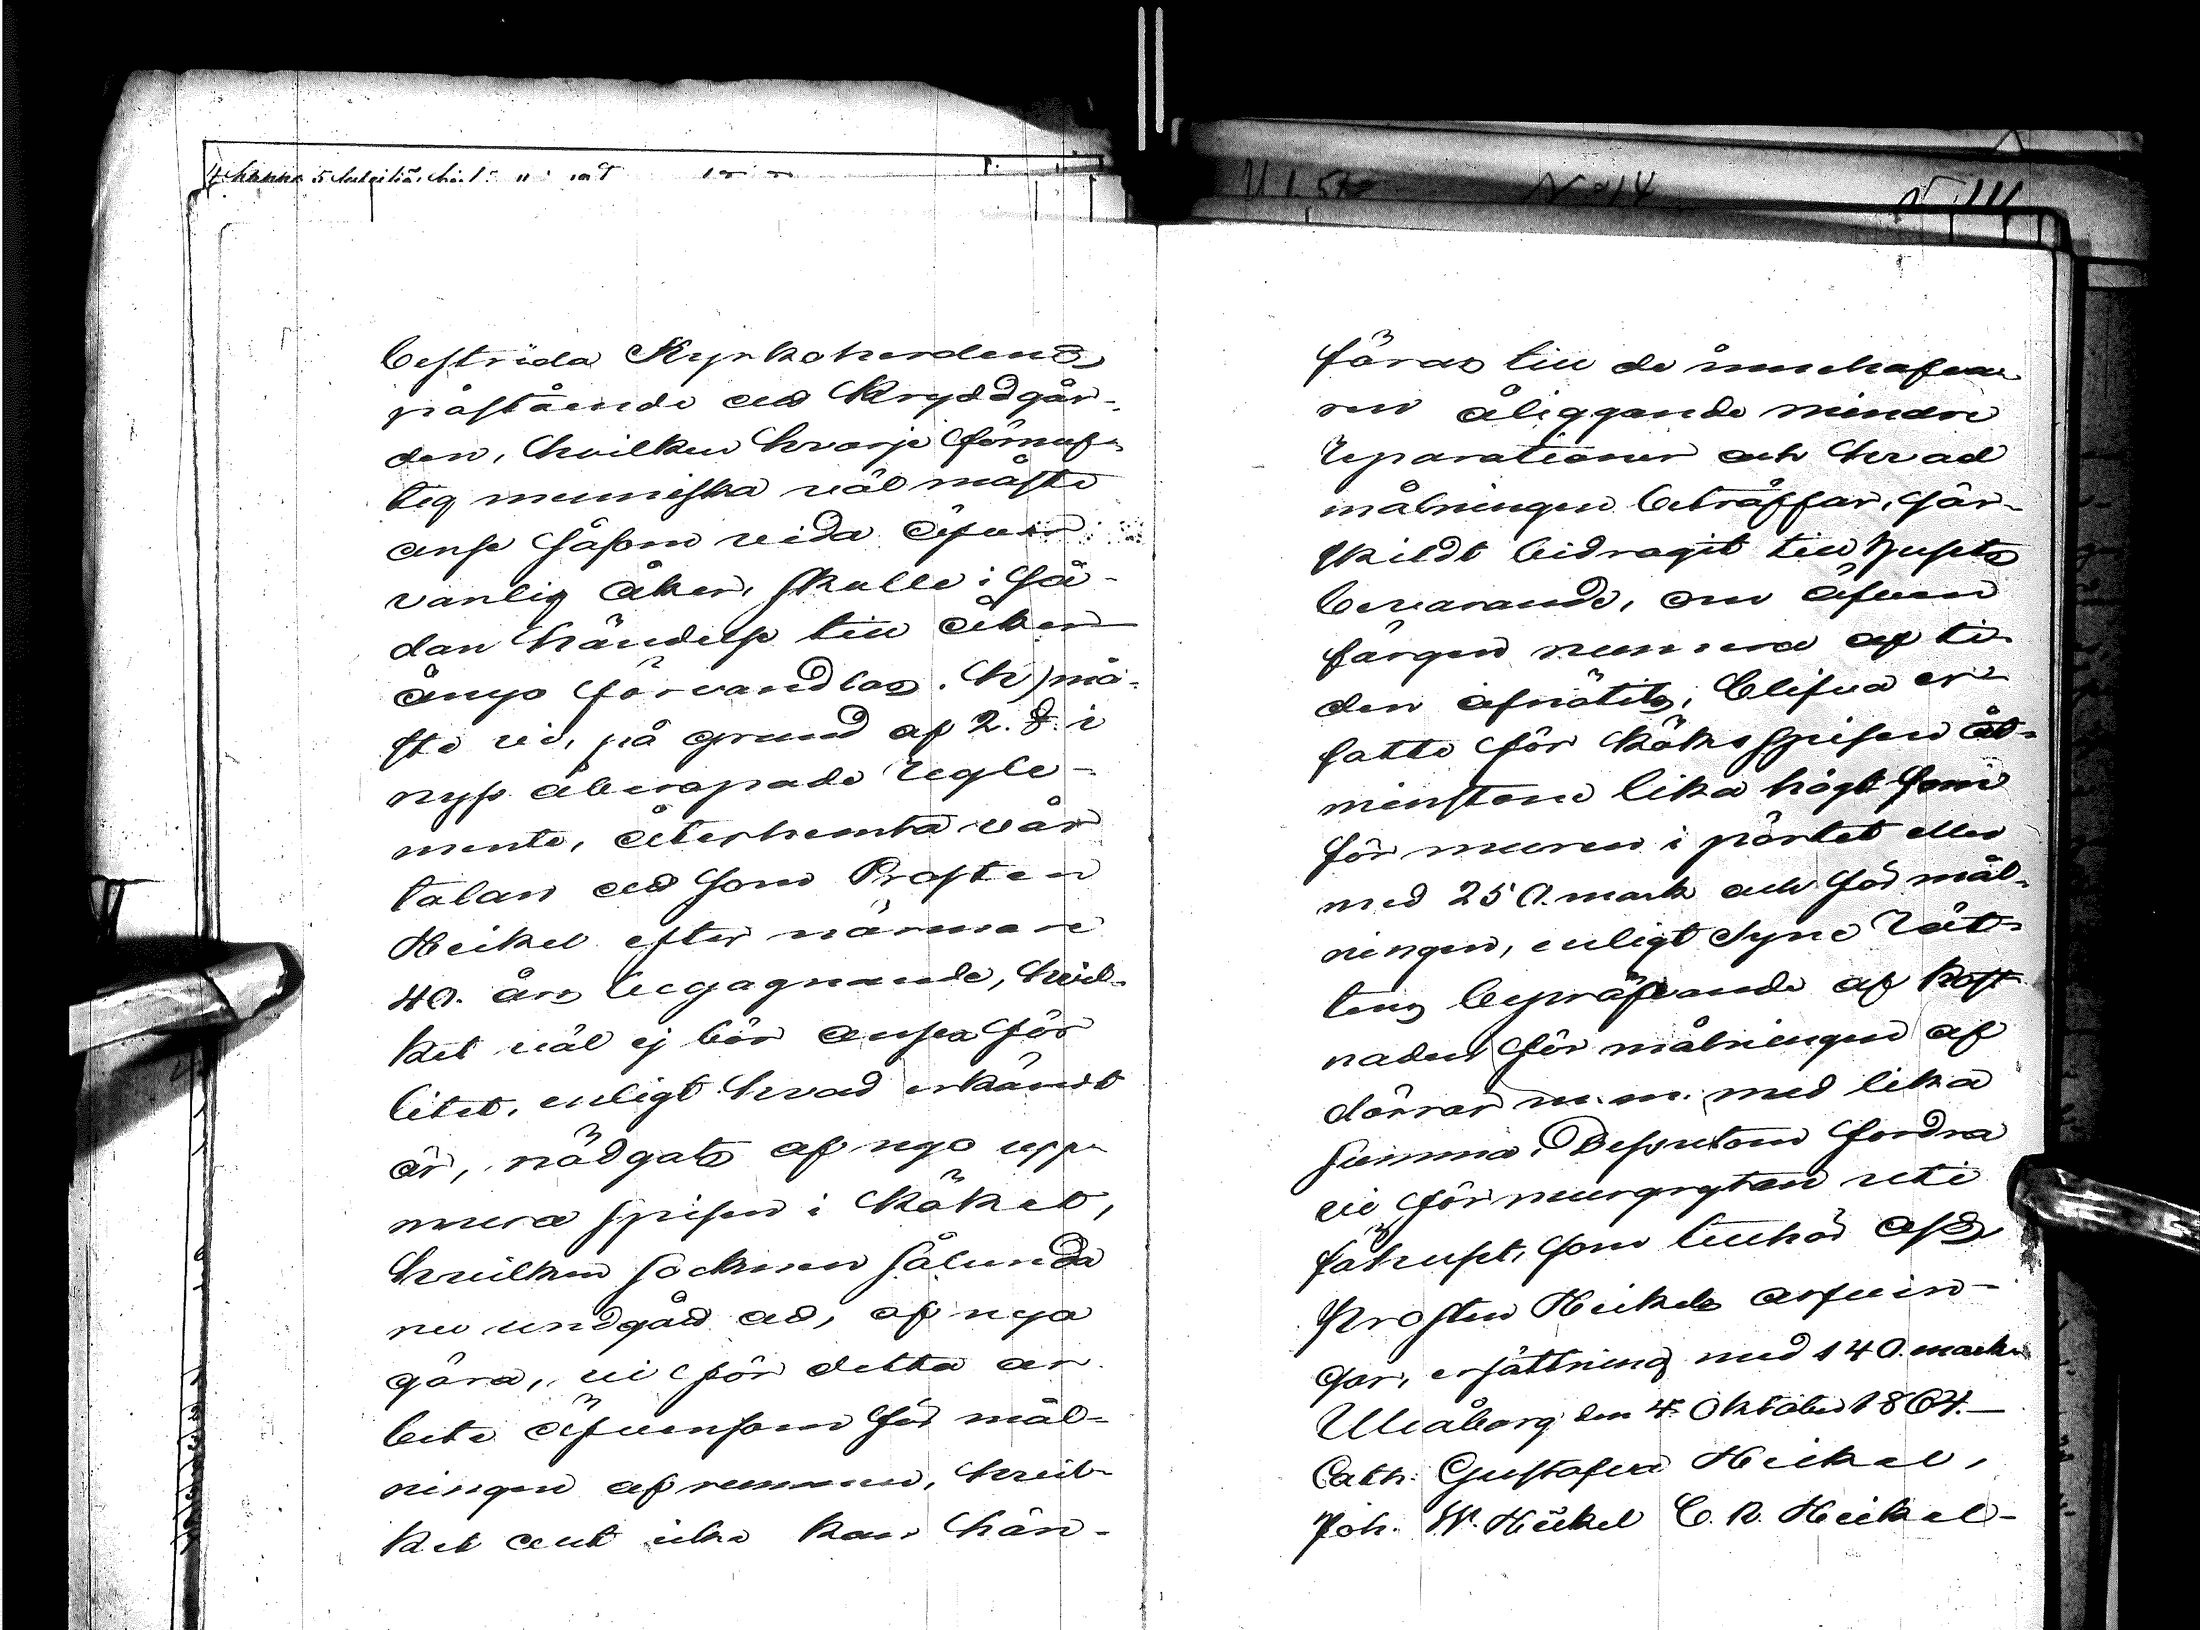 bestrida Kyrkoherdens
påstående att Kryddgår-
den, hvilken hvarje förnuf-
tig menniska väl måste
anse såsom vida öfver
vanlig åker, skulle i så-
dan händelse till åker
ånyo förvandlas. h) må-
ste vi, på grund af 2. §. i
nyss åberopade regle-
mente, återhemta vår
talan att som Prosten
Heikel efter närmare
40. års begagnande, hvil-
ket väl ej bör anses för
litet, enligt hvad erkändt
är, nödgats af nyo upp-
mura spisen i köket,
hvilken socknen sålunda
nu undgått att, af nya
göra, vi för detta ar-
bete äfvensom för mål-
ningen af rummen, hvil-
ket allt icke kan hän-
föras till de innehafva-
ren åliggande mindre
reparationer och hvad
målningen beträffar, sär-
skildt bidragit till husets
bevarande, om äfven
färgen numera af ti-
den afnötits, blifva er-
satte för köksspisen åt-
minstone lika högt som
för muren i pörtet eller
med 250. mark och för mål-
ningen, enligt Syne Rät-
tens bepröfvande af kost-
naden för målningen af
dörrar m.m. med lika
summa. Dessutom fordra
vi för murgrytan uti
fähuset, som tillhör afl.
Prosten Heikels arfvin-
gar, ersättning med 140. mark.
Uleåborg den 4. Oktober 1864.—
Cath. Gustafva Heikel,
Joh. W. Heikel C. R. Heikel-